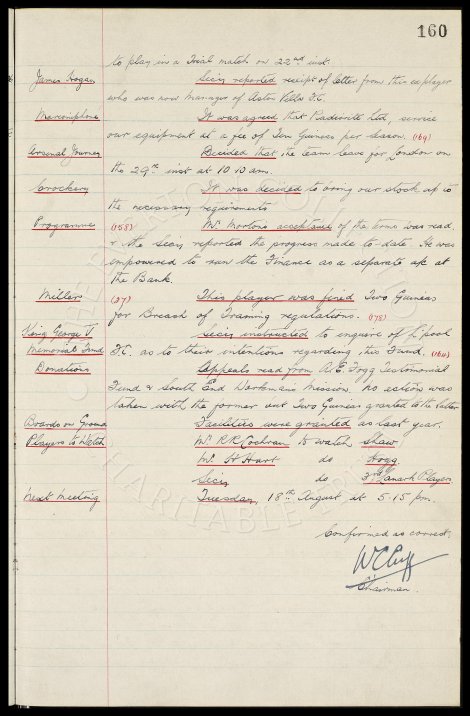 160
to play in a Trial match on 22nd inst.
James Hogan Secy reported receipt of letter from this explayer
who was now manager of Aston Villa F.C.
Marconiphone It was agreed that Radiorite Ltd, service
our equipment at a fee of Ten Guineas per season. (169)
Arsenal Journey Decided that the team leave for London on
the 29th inst at 10.10 am.
Crockery It was decided to bring our stock up to
the necessary requirements
Programme (158) Mr. Morton's acceptance of the terms was read
& the Secy. reported the progress made to date. He was
empowered to run the Finance as a separate a/c at
the Bank.
Miller (27) This player was fined Two Guineas
for Breach of Training regulations. (178)
King George V Secy instructed to enquire of L'pool
Memorial Fund F.C. as to their intentions regarding this Fund. (164)
Donations Appeals read from A.E. Fogg Testimonial
Fund & South End Workmens Mission. No action was
taken with the former but Two Guineas granted to the latter
Boards on Ground Facilities were granted as last year.
Players to Watch Mr R.R. Cochran to watch Shaw
Mr. H Hart do Hogg
Secy do 3 Lanark Players
Next Meeting Tuesday, 18th August, at 5.15 pm.
Confirmed as correct,
W C Cuff
Chairman.
CHARITABLE